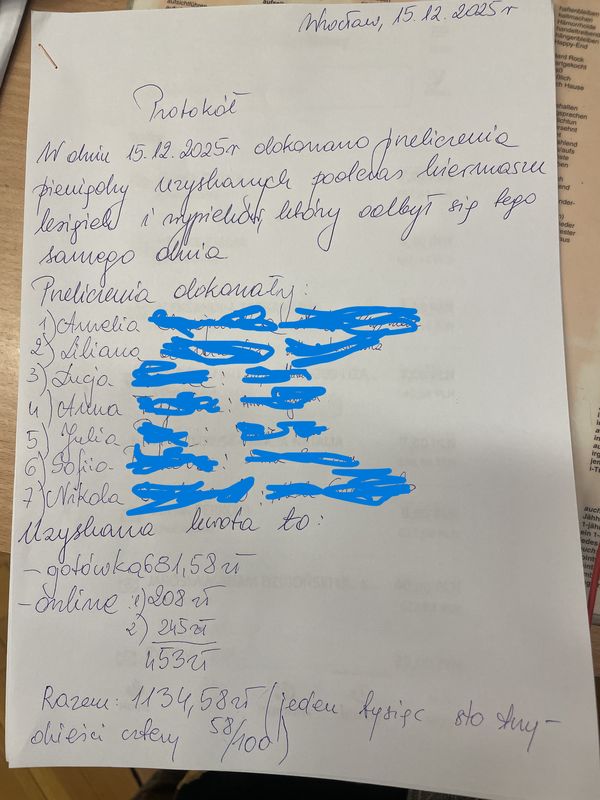 Wrocław, 15.12.2025r
Protokół
W dniu 15.12.2025r dokonano przeliczenia
pieniędzy uzyskanych podczas kiermaszu
książek i wypieków, który odbył się tego
samego dnia
Przeliczenia dokonały:
1) Amelia
2) Liliana
3) Łucja
4) Anna
5) Julia
6) Sofiia
7) Nikola
Uzyskana kwota to:
- gotówka 681,58 zł
- online 1) 208 zł
2) 245 zł
453 zł
Razem: 1134,58 zł (jeden tysiąc sto trzy-
dzieści cztery 58/100)